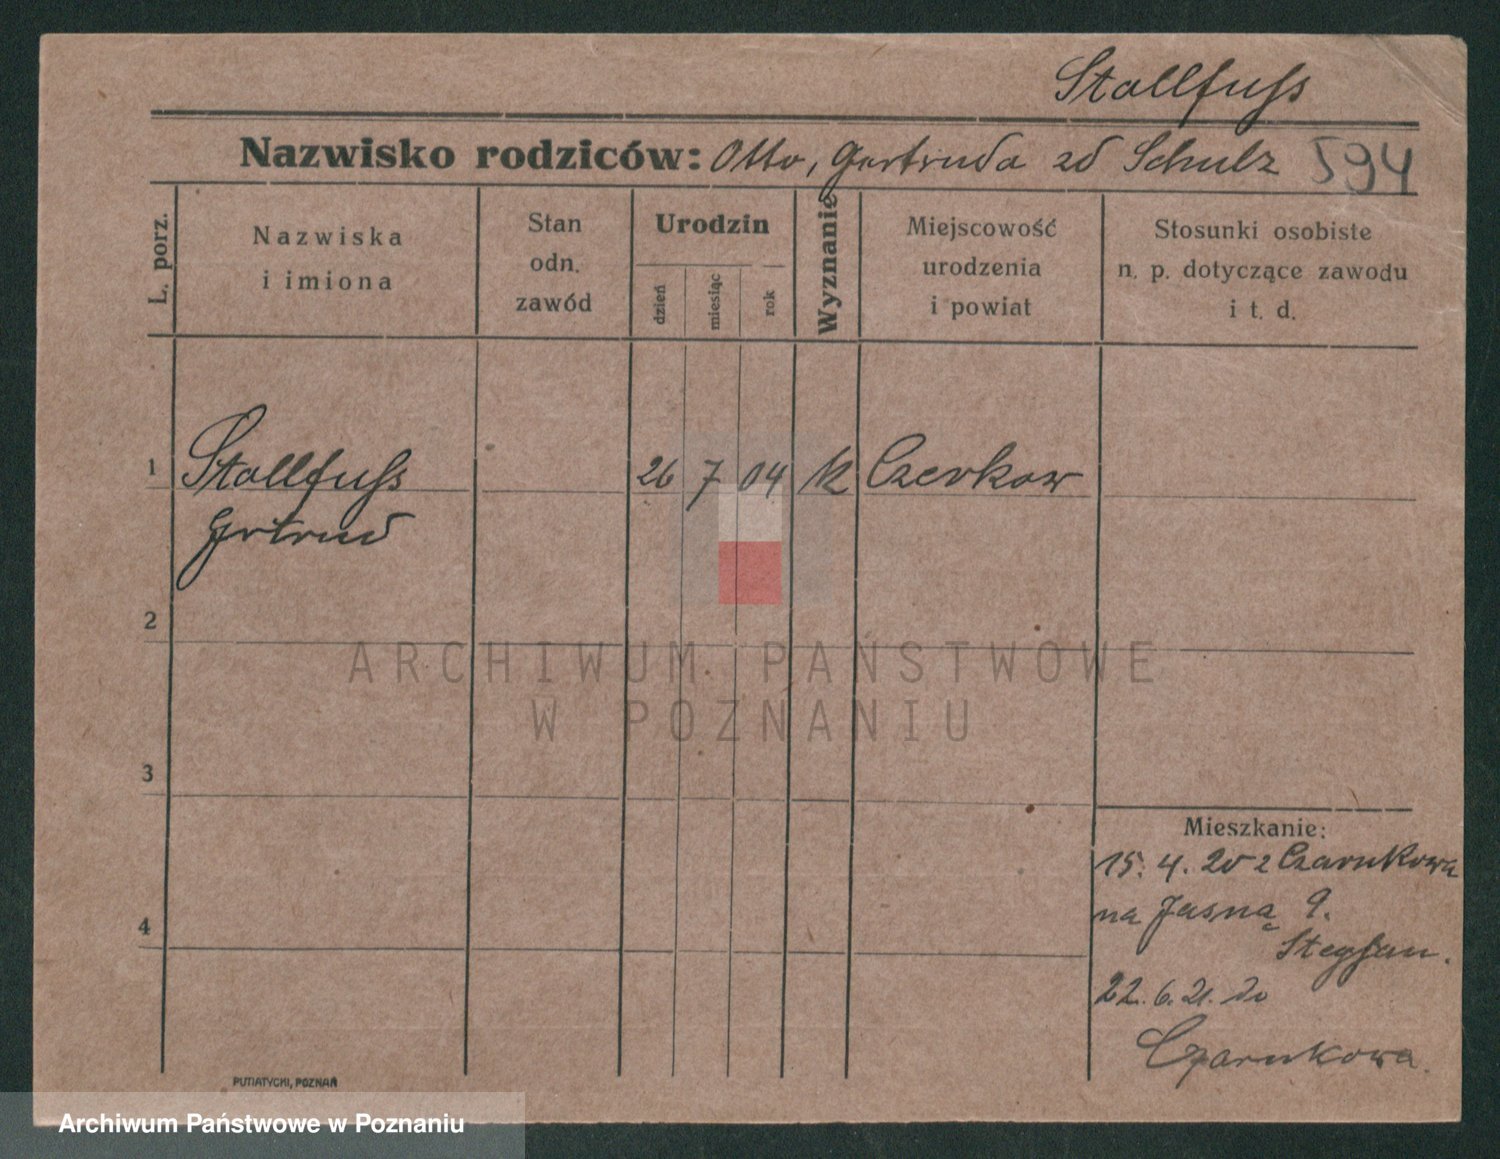 Stallfuss
Nazwisko rodziców: Otto, Gertruda zd Schulz 594
L. porz.
Nazwiska
i imiona
Stan
odn.
zawód
Urodzin
dzień
miesiąc
rok
Wyznanie
Miejscowość
urodzenia
i powiat
Stosunki osobiste
n. p. dotyczące zawodu
i t. d.
1 Stallfuss 26 7 04 k Czerkow
Gertrud
2
3
4
Mieszkanie:
15. 4. 20 z Czarnkowa
na Jasną 9.
22. 6. 21. do
Czarnkowa.
PUTIATYCKI, POZNAŃ
ARCHIWUM PAŃSTWOWE
W POZNANIU
Archiwum Państwowe w Poznaniu